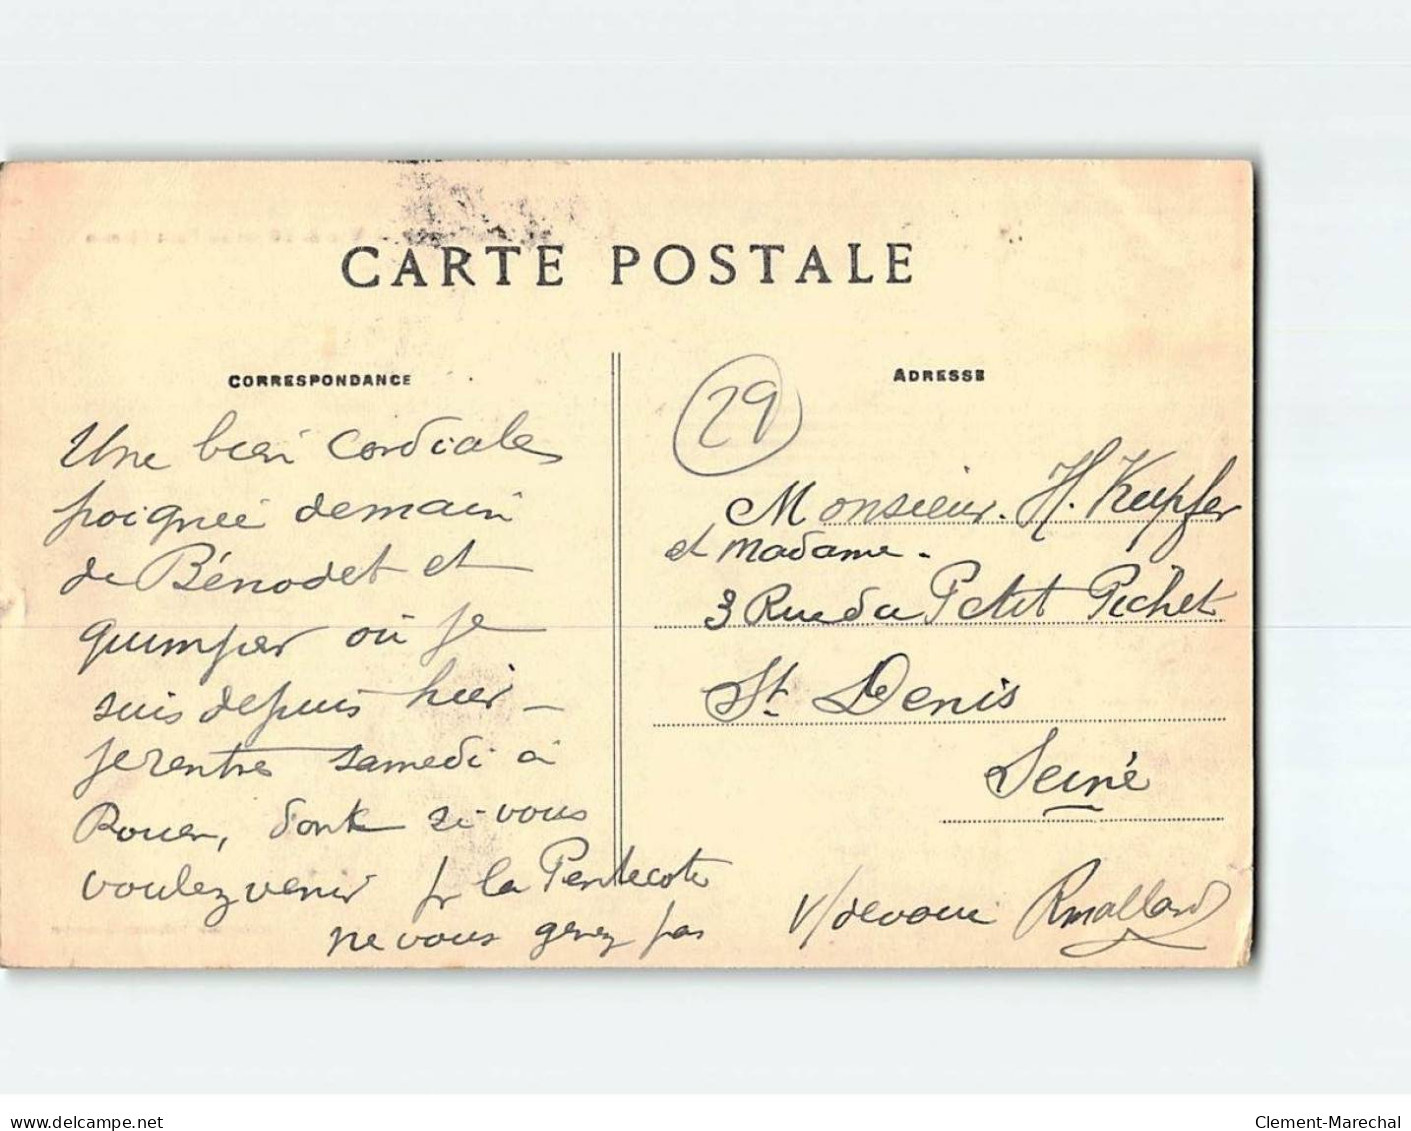 CARTE POSTALE
CORRESPONDANCE
Une bien Cordiale
poignée demain
de Bénodet et
quimper où je
suis depuis hier -
je rentre samedi à
Rouen, donc si vous
voulez venir pr la Pentecote
ne vous genez pas
v/devoué RMallard
ADRESSE
29
Monsieur. H. Kupfer
et Madame -
3 Rue du Petit Pichet
St Denis
Seine
www.delcampe.net
Clement-Marechal